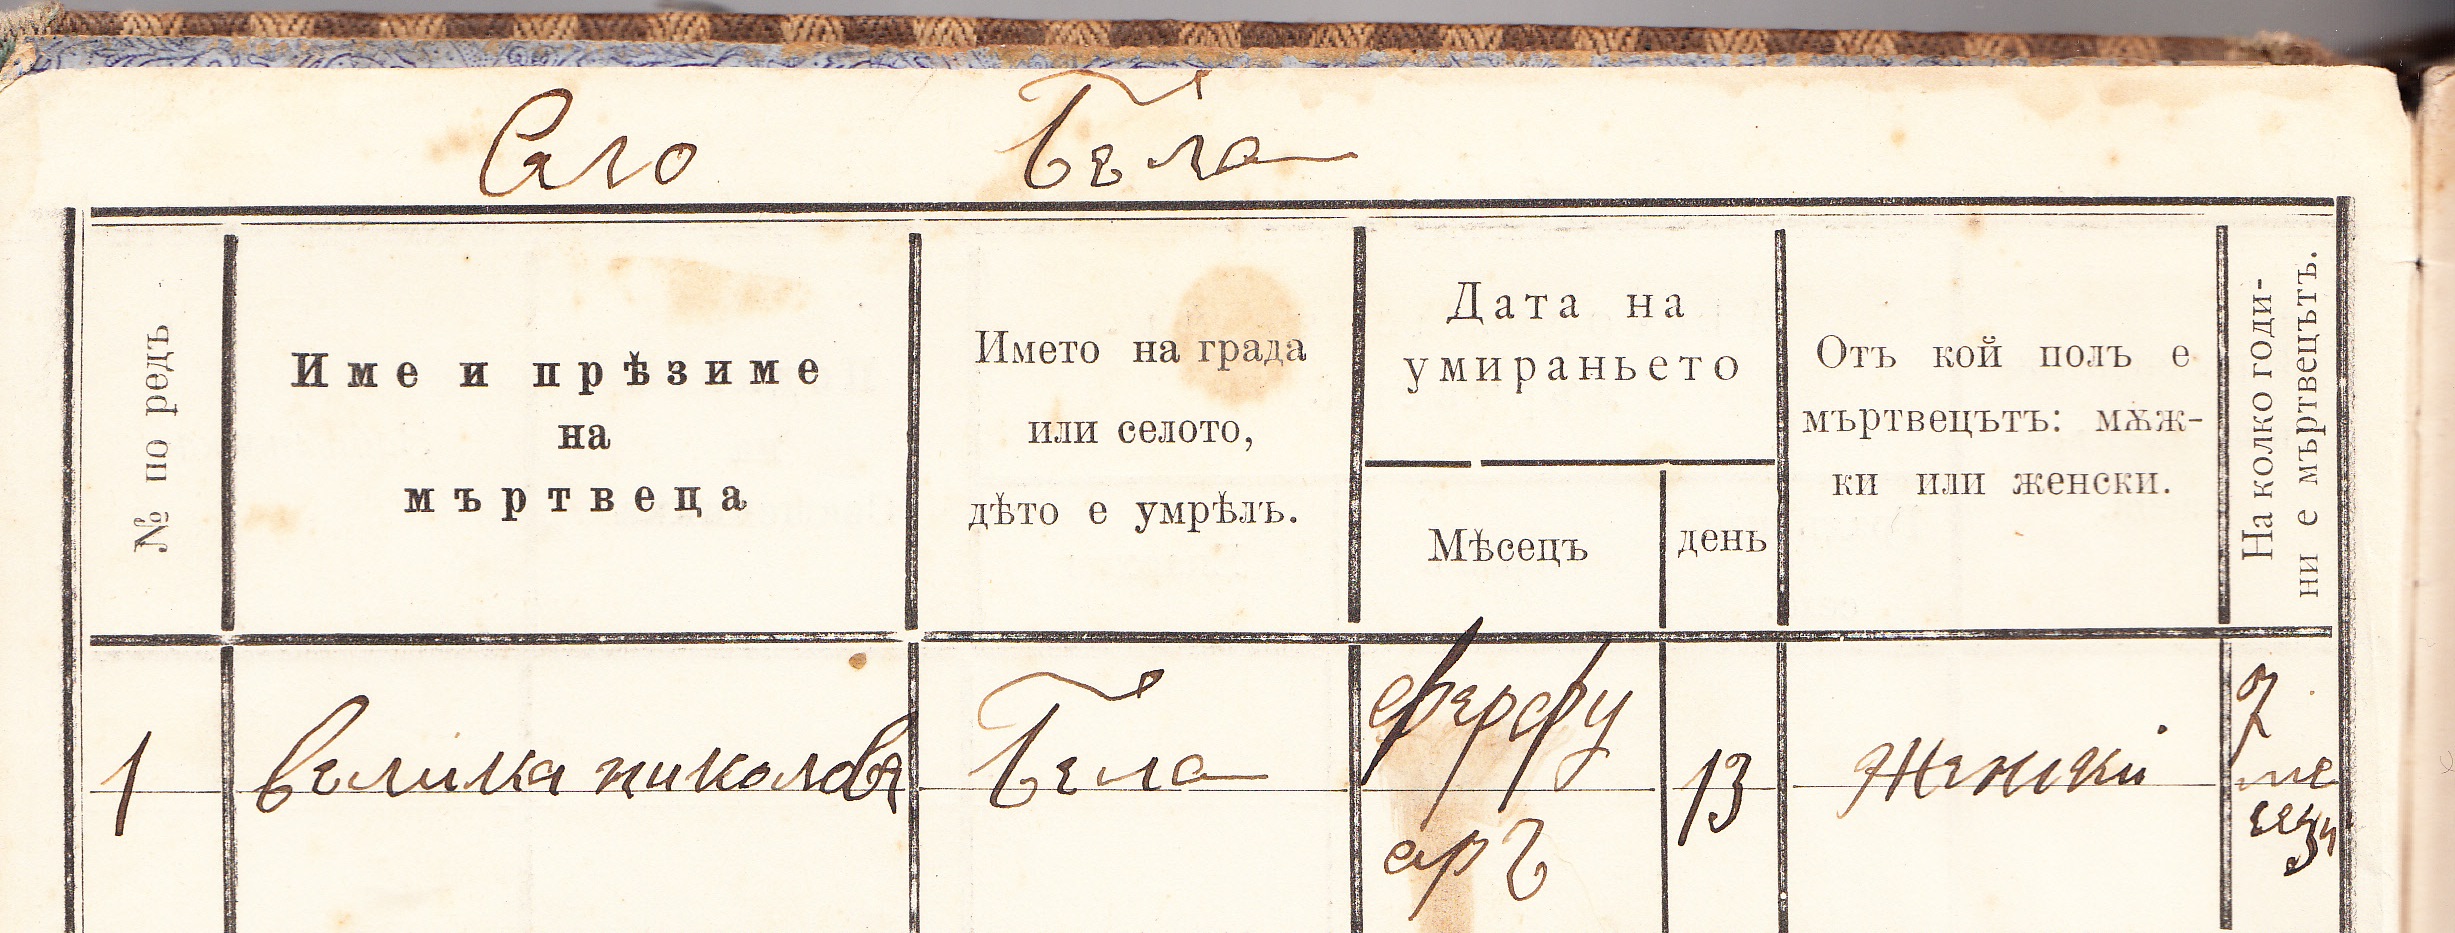 Село Бела
№ по редъ
Име и прѣзиме
на
мъртвеца
Името на града
или селото,
дѣто е умрѣлъ.
Дата на
умираньето
Мѣсецъ
день
Отъ кой полъ е
мъртвецътъ: мѫж-
ки или женски.
На колко годи-
ни е мъртвецътъ.
1
велика николова
Бела
13
женскій
ме